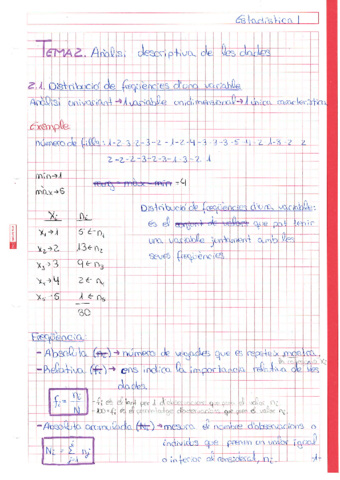 Estadística I
TEMA 2. Anàlisi descriptiva de les dades
2.1. Distribució de freqüències d'una variable
Anàlisi univariant → 1 variable unidimensional → 1 única característica
Exemple
número de fills: 1-2-3-2-3-2-1-2-4-3-3-3-5
2-2-2-3-2-3-1-3-2
min → 1
màx → 5
rang = max - min = 4
Xi ni
x1 → 1 5 ← n1
x2 → 2 13 ← n2
x3 → 3 9 ← n3
x4 → 4 2 ← n4
x5 - 5 1 ← n5
30
Distribució de freqüències d'una variable:
és el que pot tenir
una variable juntament amb les
seves freqüències
Freqüència:
- Absoluta (ni) → número de vegades que es repeteix
- Relativa (fi) → ens indica la importància relativa de les
dades.
fi = ni / N
- fi és el tant per 1 d'observacions que pren el valor
- 100·fi és el percentatge d'observacions que pren el valor
- Absoluta acumulada (Ni) → mesura el nombre d'observacions o
individus que prenen un valor igual
o inferior al considerat, ni
Ni = Σ nj
j=1
-1-